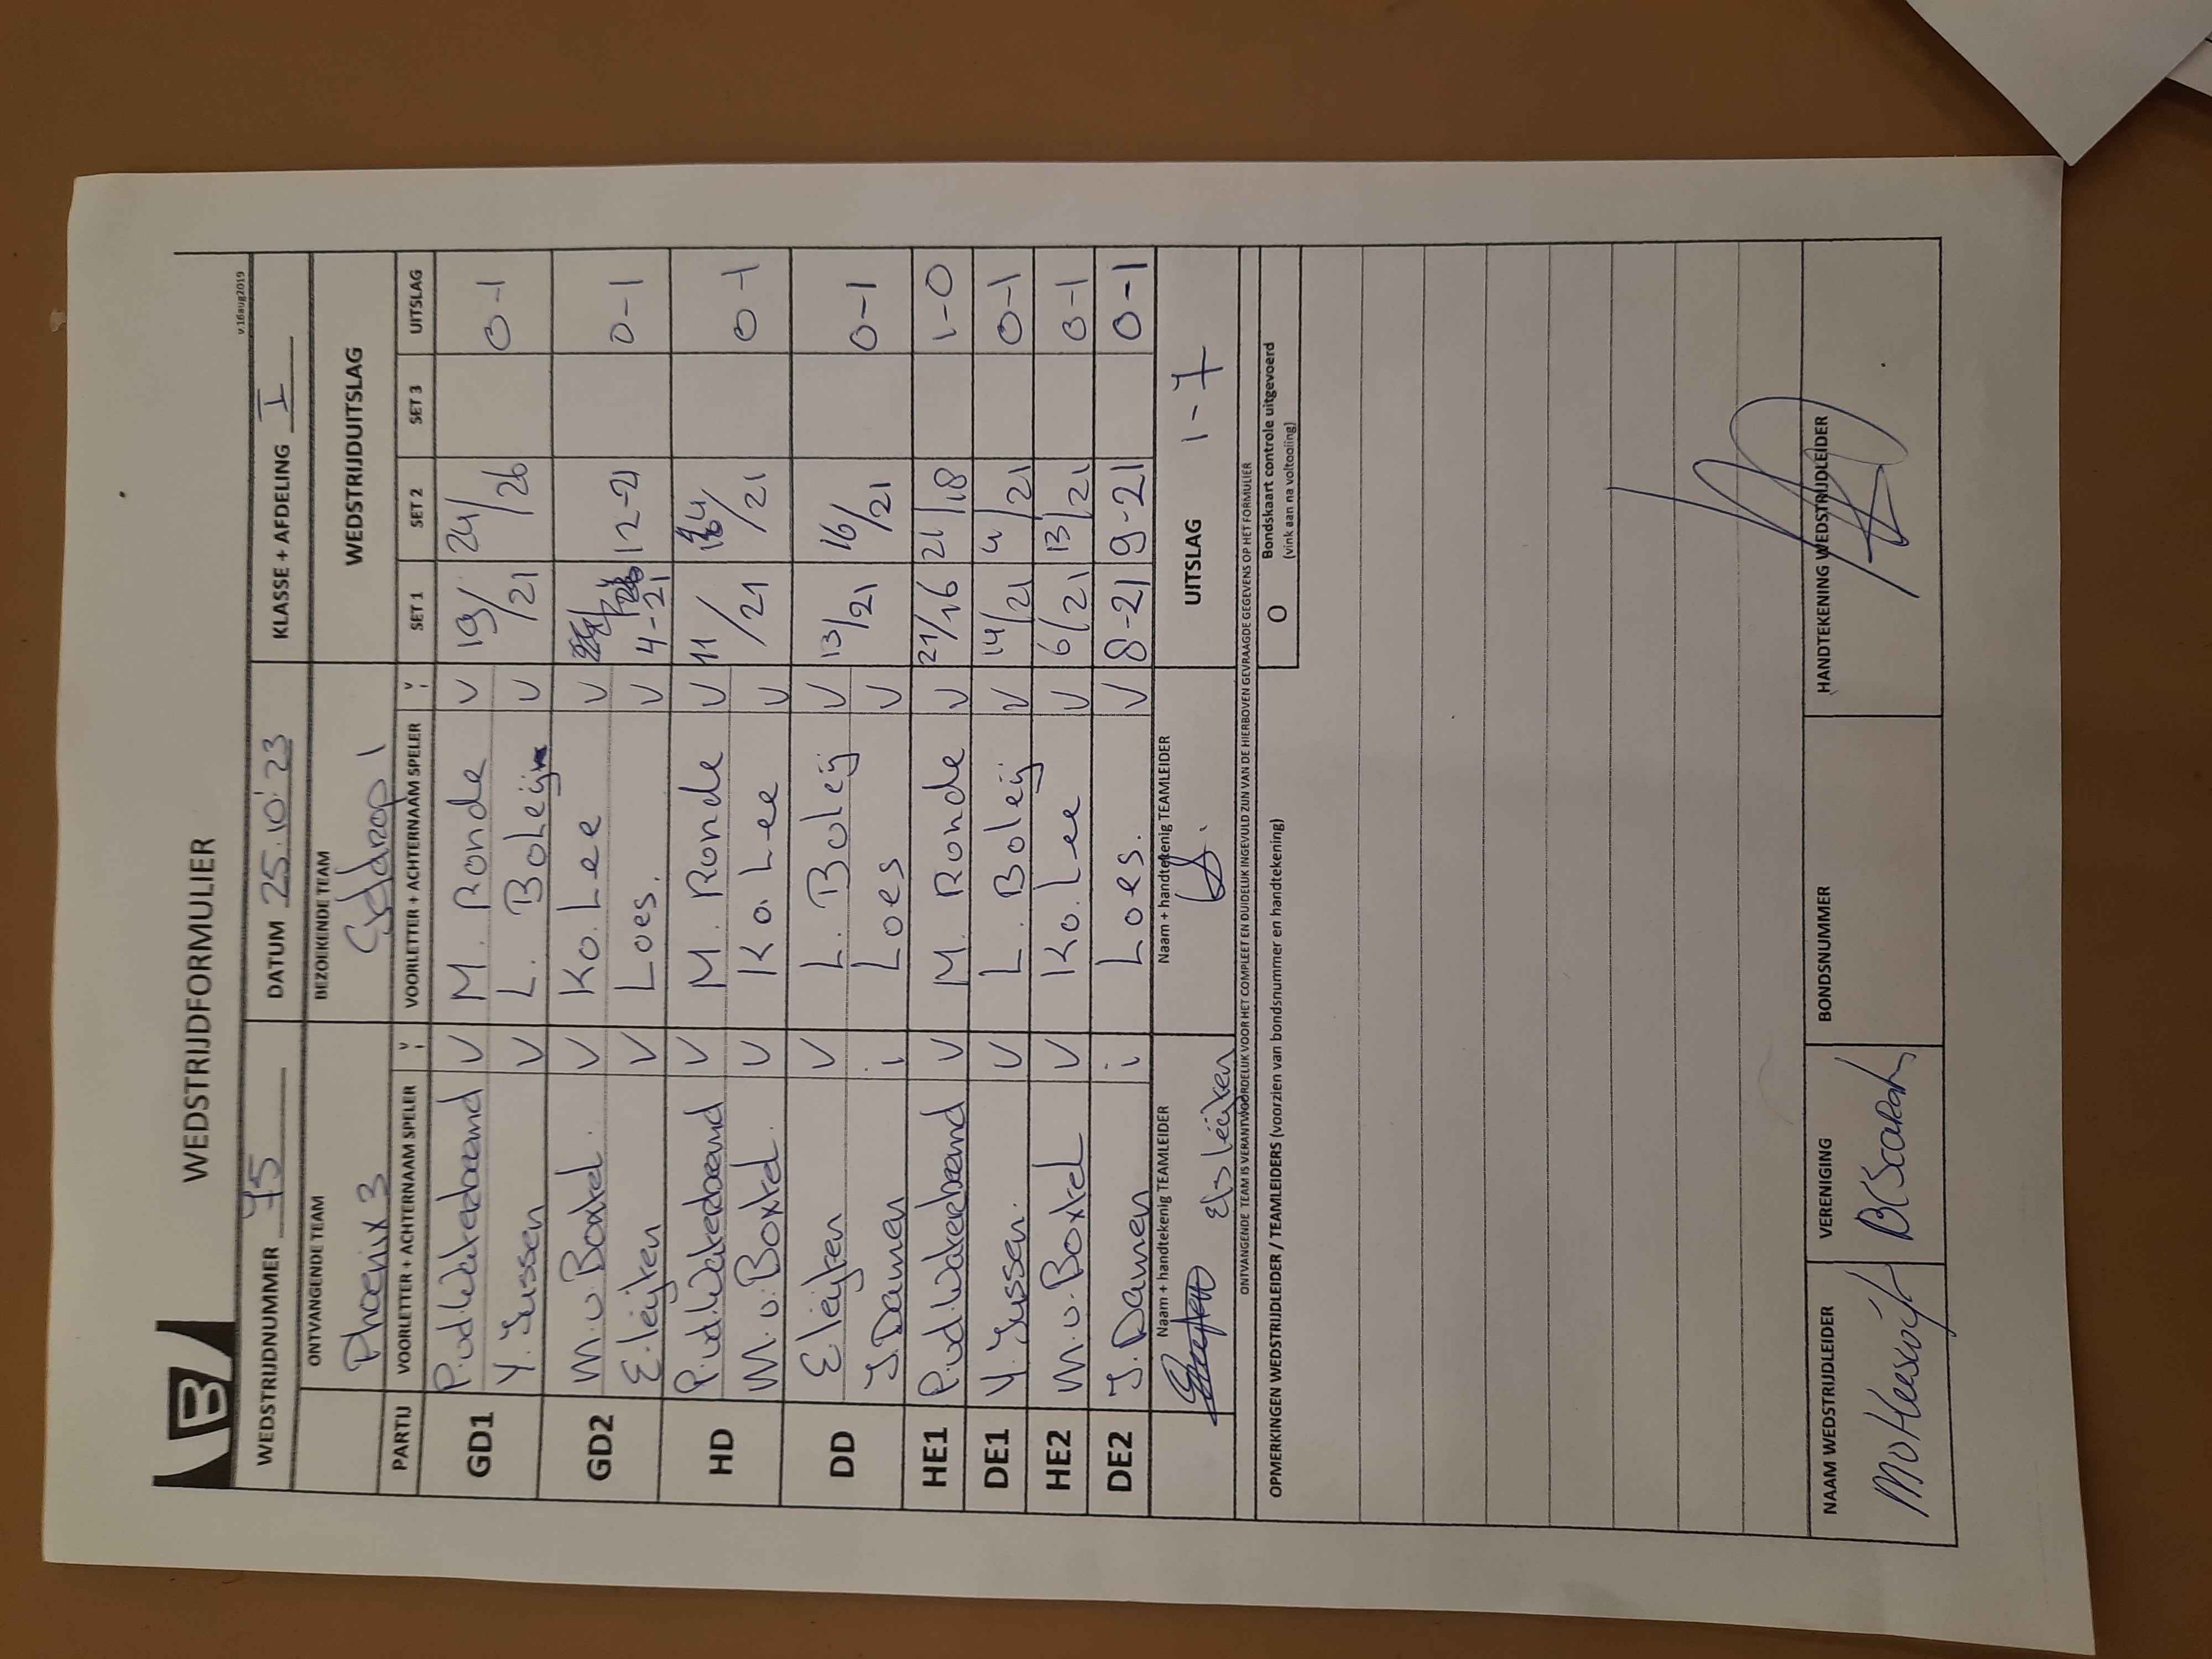 B
WEDSTRIJDFORMULIER
v.16aug2019
WEDSTRIJDNUMMER 75 DATUM 25.10.'23 KLASSE + AFDELING I
ONTVANGENDE TEAM BEZOEKENDE TEAM WEDSTRIJDUITSLAG
Phoenix 3
PARTIJ VOORLETTER + ACHTERNAAM SPELER V/I VOORLETTER + ACHTERNAAM SPELER V/I SET 1 SET 2 SET 3 UITSLAG
GD1 P.vd.Wakerbaand V M. Ronde V 19/21 24/26 0-1
Y. Jussen V L. Boleij V
GD2 M.v.Boxtel. V Ko.Lee V
E.leijten V Loes. V 4-21 12-21 0-1
HD P.vd.Wakerbaand V M. Ronde V 11/21 /21 0-1
M.v.Boxtel. V Ko.Lee V
DD E leijten V L. Boleij V 13/21 16/21 0-1
J.Damen i Loes V
HE1 P.vd.Wakerbaand V M. Ronde V 21/16 21/18 1-0
DE1 Y. Jussen. V L. Boleij V 14/21 4/21 0-1
HE2 M.v.Boxtel V Ko.Lee V 6/21 13/21 0-1
DE2 J.Damen i Loes. V 8-21 9-21 0-1
Naam + handtekenig TEAMLEIDER Naam + handtekenig TEAMLEIDER UITSLAG 1-7
Els Leijten
ONTVANGENDE TEAM IS VERANTWOORDELIJK VOOR HET COMPLEET EN DUIDELIJK INGEVULD ZIJN VAN DE HIERBOVEN GEVRAAGDE GEGEVENS OP HET FORMULIER
OPMERKINGEN WEDSTRIJDLEIDER / TEAMLEIDERS (voorzien van bondsnummer en handtekening) O Bondskaart controle uitgevoerd
(vink aan na voltooiing)
NAAM WEDSTRIJDLEIDER VERENIGING BONDSNUMMER HANDTEKENING WEDSTRIJDLEIDER